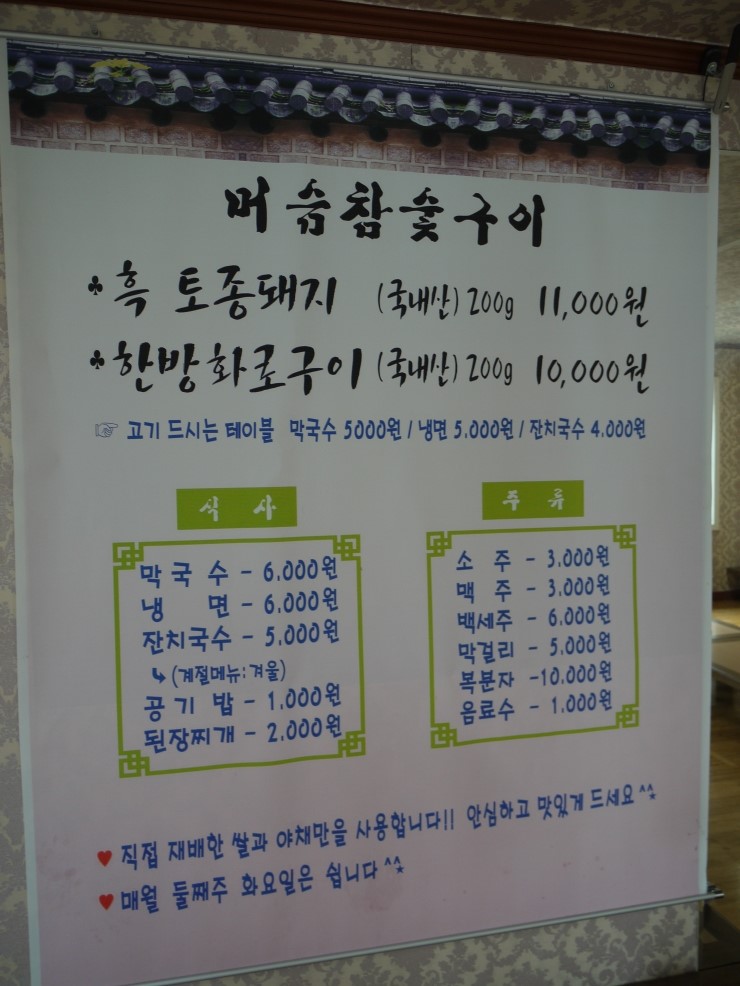 머슴참숯구이
♣흑 토종돼지 (국내산) 200g 11,000원
♣한방화로구이 (국내산) 200g 10,000원
☞ 고기 드시는 테이블 막국수 5000원 / 냉면 5.000원 / 잔치국수 4.000원
식 사
막 국 수 - 6.000원
냉 면 - 6.000원
잔치국수 - 5.000원
↳ (계절메뉴:겨울)
공 기 밥 - 1.000원
된장찌개 - 2.000원
주 류
소 주 - 3.000원
맥 주 - 3.000원
백세주 - 6.000원
막걸리 - 5.000원
복분자 -10.000원
음료수 - 1.000원
♥ 직접 재배한 쌀과 야채만을 사용합니다!! 안심하고 맛있게 드세요^^*
♥ 매월 둘째주 화요일은 쉽니다^^*